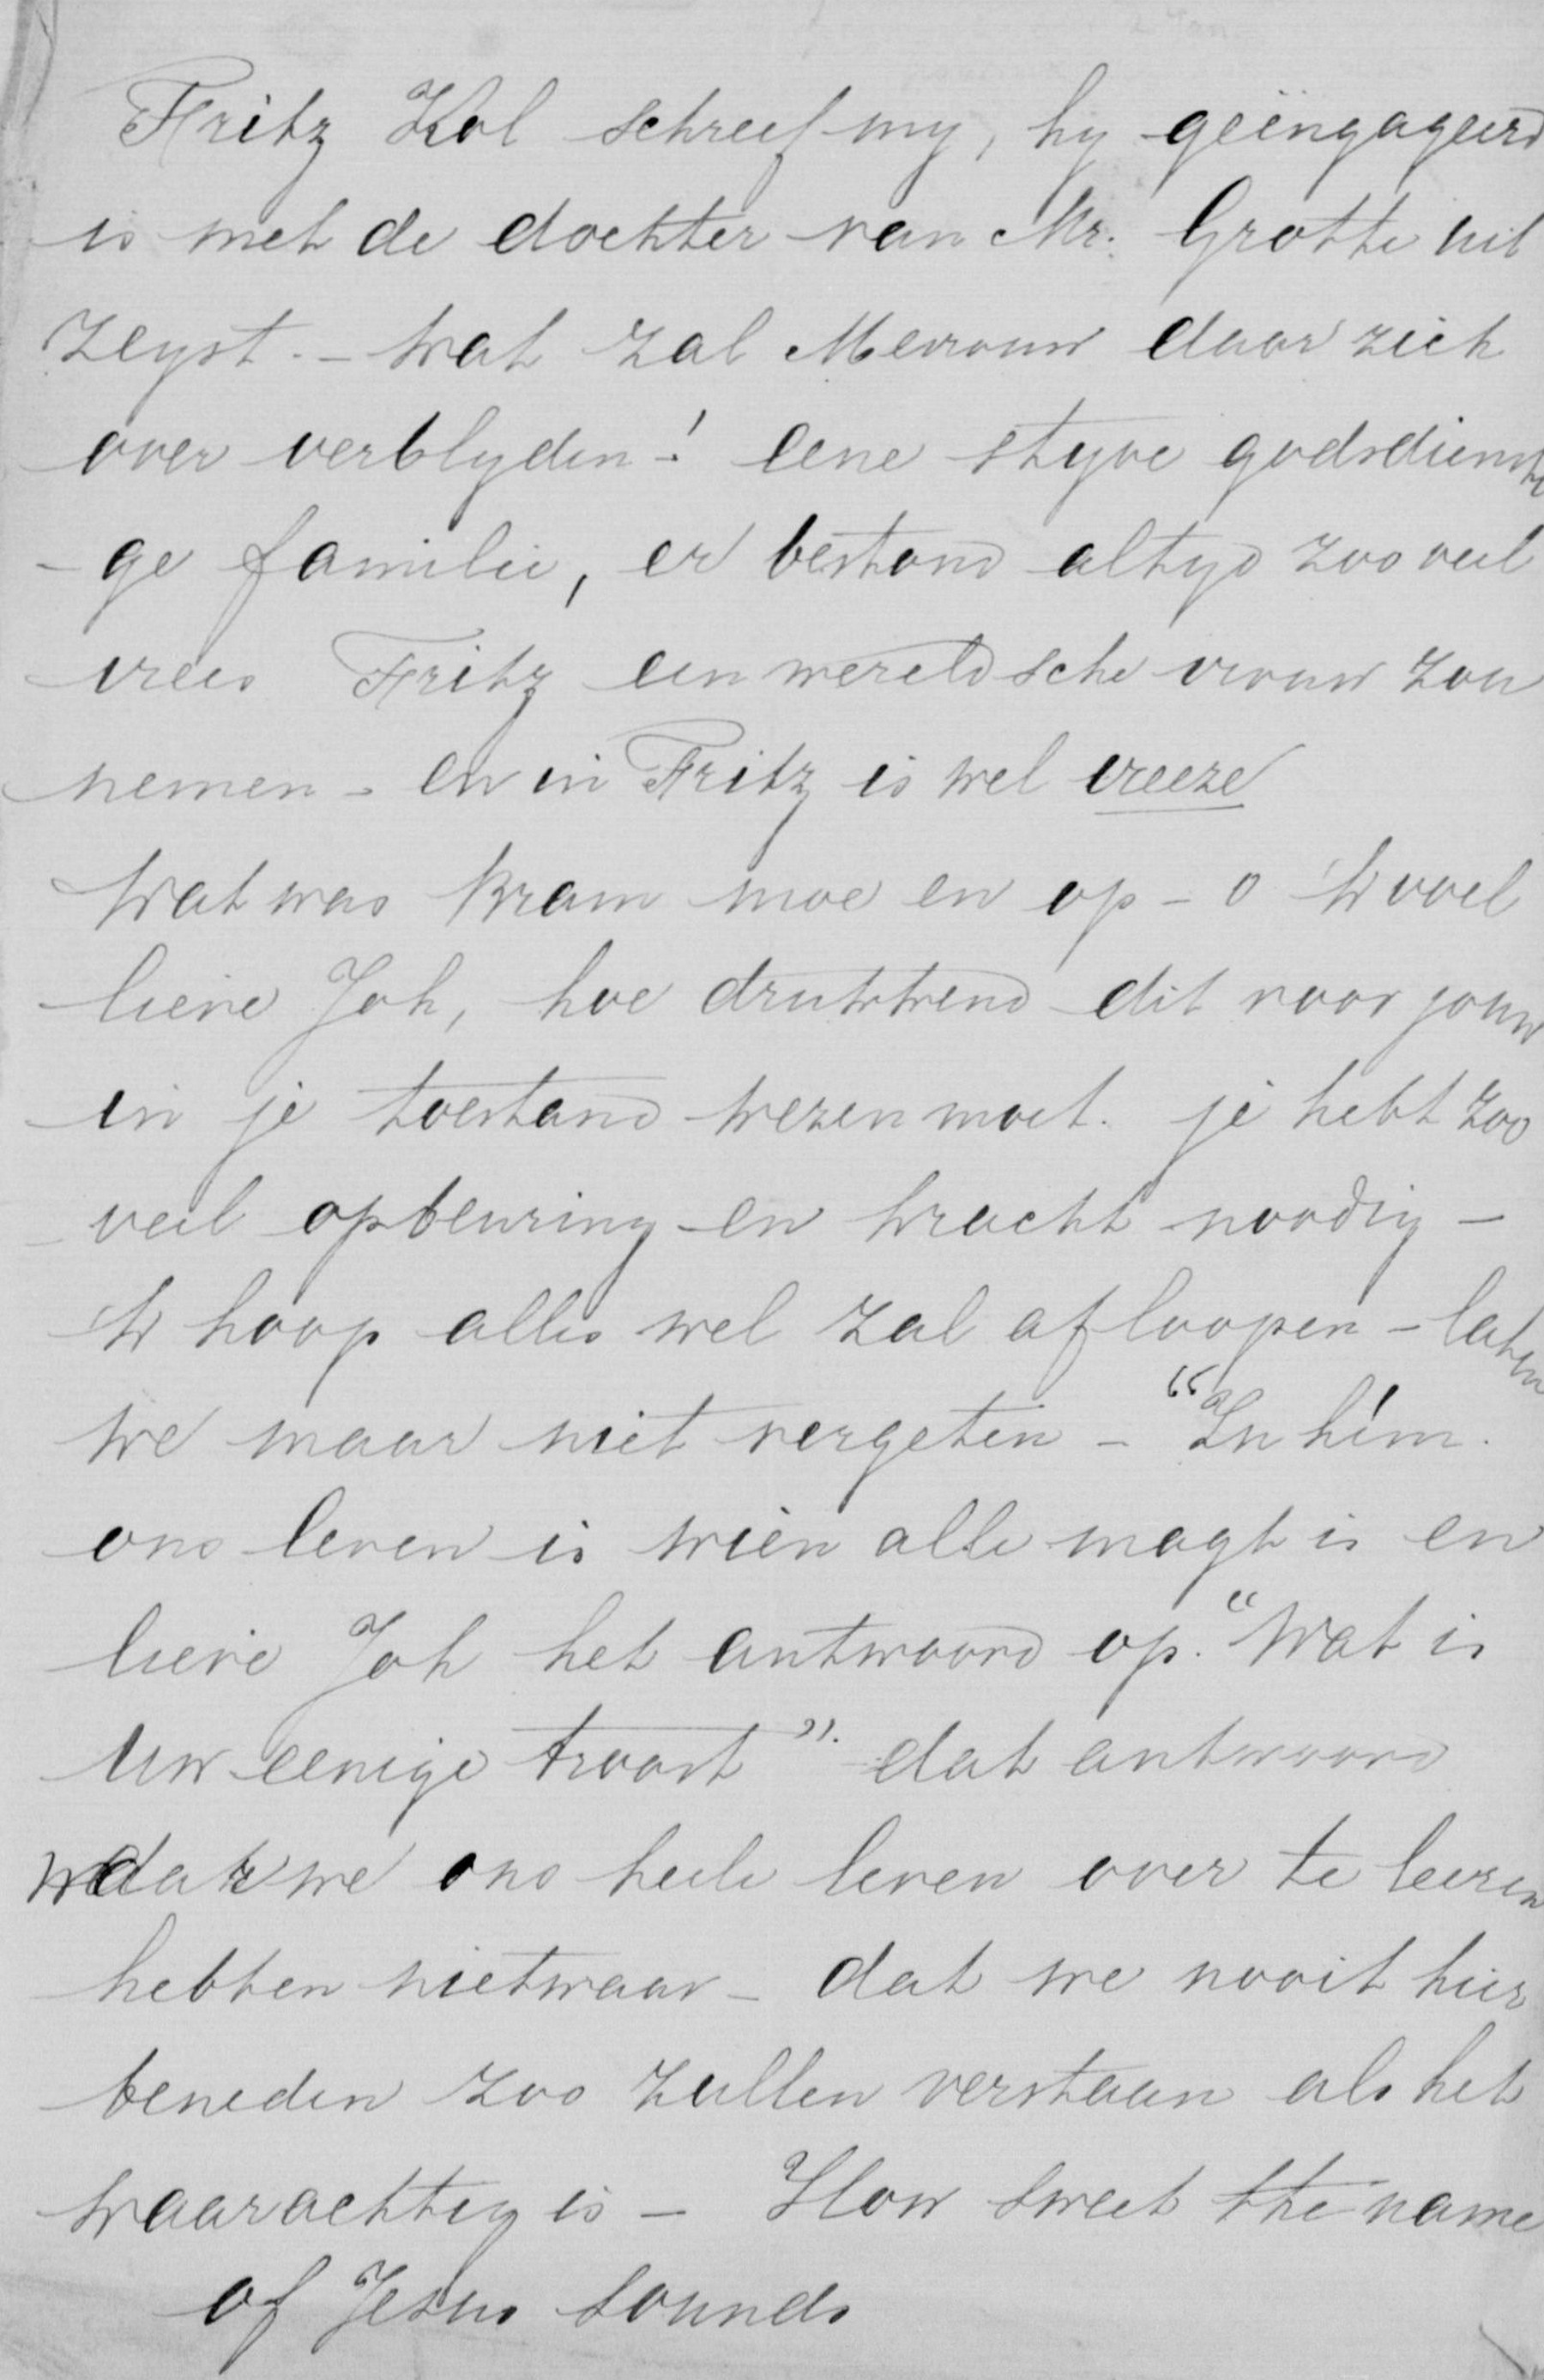 Fritz Kol schreef my, hy geëngageerd
is met de dochter van Mr. Grothe uit
Zeyst. - wat zal Mevrouw daar zich
over verblyden! eene styve godsdiensti
- ge familie, er bestond altyd zoo veel
vrees Fritz een wereldsche vrouw zou
nemen - en in Fritz is wel vreeze
Wat was Bram moe en op - o k voel
lieve Joh, hoe drukkend dit voor jouw
in je toestand wezen moet. je hebt zoo
veel opbeuring en kracht noodig -
k hoop alles wel zal afloopen - laten
we maar niet vergeten - "In hem
ons leven is wien alle magt is en
lieve Joh het antwoord op. "Wat is
uw eenige troost". dat antwoord
waar we ons heele leven over te leeren
hebben nietwaar - dat we nooit hier
beneden zoo zullen verstaan als het
waarachtig is - How sweet the name
of Jesus sounds